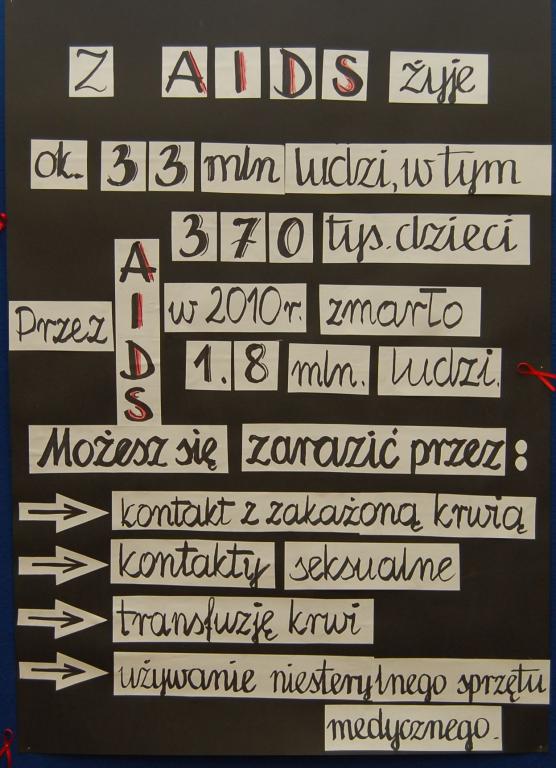 Z AIDS żyje
ok. 33 mln ludzi, w tym
370 tys. dzieci
Przez AIDS w 2010 r. zmarło
1.8 mln. ludzi.
Możesz się zarazić przez:
kontakt z zakażoną krwią
kontakty seksualne
transfuzję krwi
używanie niesterylnego sprzętu
medycznego.